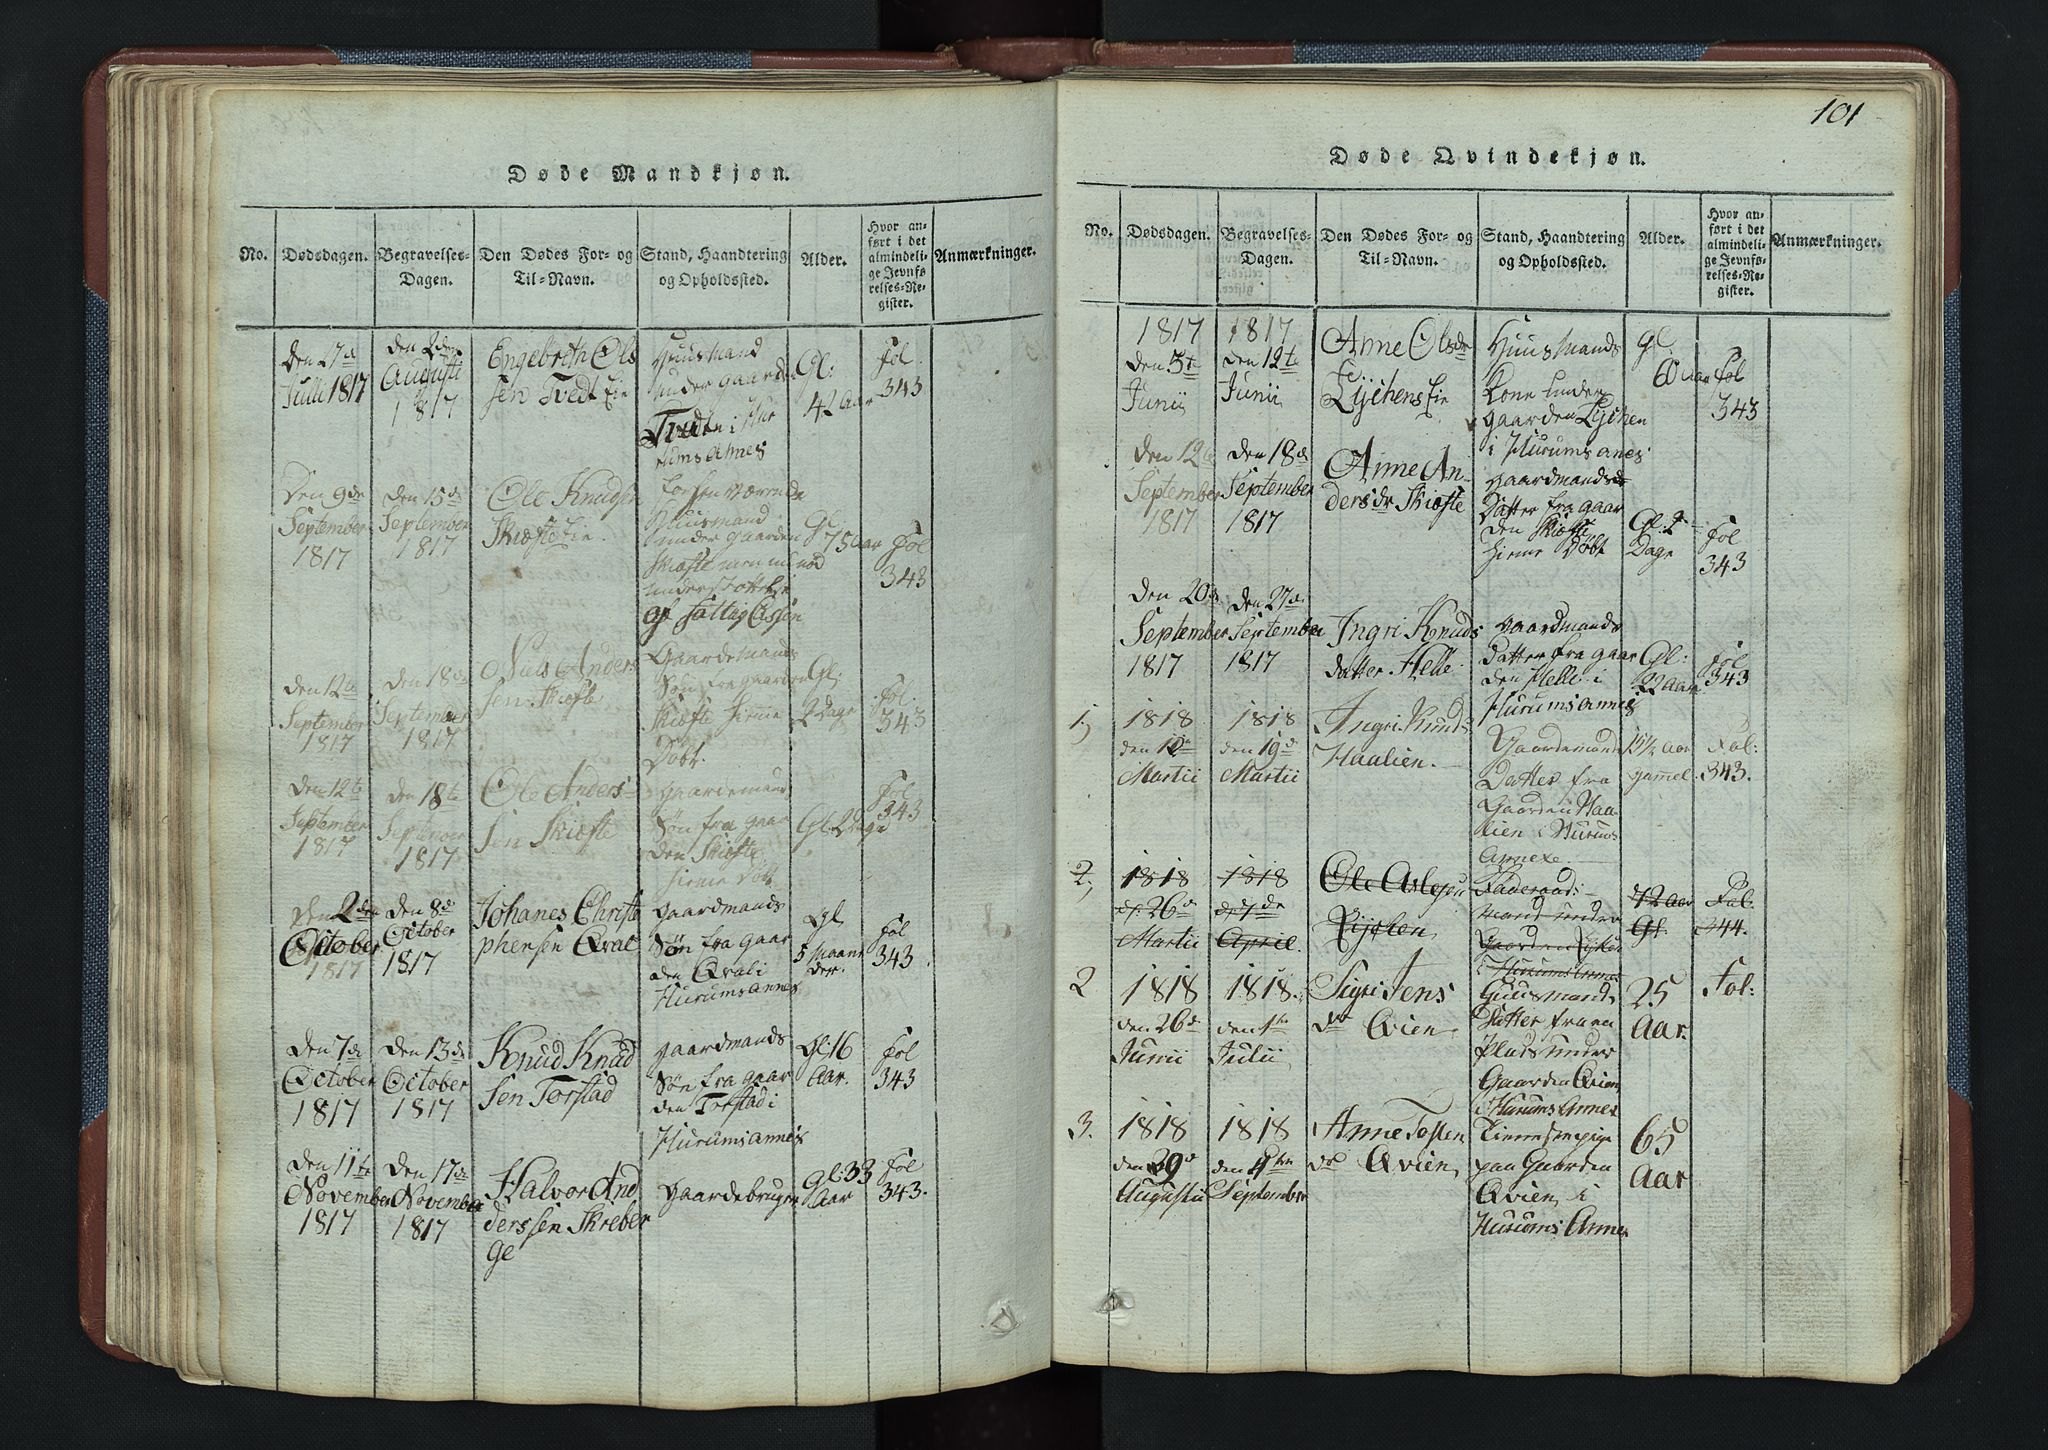 Døde Mandkjøn.
No.
Dødsdagen.
Begravelses-
Dagen.
Den Dødes For- og
Til-Navn.
Stand, Haandtering
og Opholdssted.
Alder.
Hvor an-
ført i det
almindeli-
ge Jevnfø
relses-Re-
gister.
Anmærkninger.
Den 27de
Julii 1817
den 2den
Augusti
1817
Engebreth Ols
sen Tvedt Eie
Huusmand
under gaarden
Tvedten i Hu
rums Annex
Gl:
42 aar
Fol
343
Den 9de
September
1817
Den 15de
September
1817
Ole Knudsen
Skiefte Eie.
Huusmand
under gaarden
Skiefte
af
Gl
75 aar
Fol
343
den 12te
September
1817
den 18de
September
1817
Niels Anders
sen Skiefte
Gaardemands
Søn fra gaarden
Skiefte hieme
Døbt.
Gl:
2 Dage
Fol.
343
den 12te
September
1817
den 18te
September
1817
Ole Anders-
sen Skiefte
gaardemands
Søn fra gaar
den Skiefte
hieme Døbt
Gl. 2 Dage
Fol
343
den 2den
October
1817
den 8de
October
1817
Johanes Christo
phersen Qvale
gaardmands
Søn fra gaar
den Qval i
Hurums annex
Gl
5 Maane
der.
Fol
343
den 7de
October
1817
Den 13de
October
1817
Knud Knud
sen Torstad
gaardmands
Søn fra gaar
den Torstad i
Hurums annex
Gl: 16
Aar.
Fol
343
den 11te
November
1817
Den 17de
November
1817
Halvor And
derssen Skreber
ge
gaardebruger
Gl: 33
Aar
Fol
343.
101
Døde Qvindekjøn.
No.
Dødsdagen.
Begravelses-
Dagen.
Den Dødes For- og
Til-Navn.
Stand, Haandtering
og Opholdssted.
Alder.
Hvor an-
ført i det
almindeli-
ge Jevnfø-
relses-Re-
gister.
Anmærkninger.
1817
den 5te
Junii
1817
den 12te
Junii
Anne Olsdr
Lijchens Eie
Huusmands
Kone under
gaarden Lijchen
i Hurums anex
Gl.
60 aar
Fol
343
den 12te
September
1817
den 18de
September
1817
Anne An-
dersdr Skiefte
gaardmands
Datter fra gaar
den Skiefte
hieme Døbt
Gl. 2
Dage
Fol
343
den 20de
September
1817
den 27de
September
1817
Ingri Knuds
datter Helle.
gaardmands
Datter fra gaar
den Helle i
Hurums annex
Gl:
22 aar
Fol
343
1.)
1818
den
Martii
1818
den 19de
Martii
Ingri Knuds
Haalien.
Gaardemands
Datter fra
Gaarden Haa-
lien i Hurums
Annexe.
15½ aar
gamel.
Fol:
343.
2,
1818
d: 26de
Martii
1818
d: 7de
April.
Ole
Rijchen,
Føderaads-
Mand under
Gaarden Rijken
i Hurums Annex
72 aar
Gl.
Fol.
344.
2
1818
den 26de
Junii
1818.
den 1te
Julii
Sigri Jens
dr Qvien.
Huusmands
Datter fra en
Plads under
Gaarden Qvien
i Hurums Annex
25
Aar.
Fol:
3.
1818
den 29de
Augustii
1818
den
September
Anne Tosten
dr Qvien,
Tienestepige
paa Gaarden
Qvien, i
Hurums Annex
65
Aar